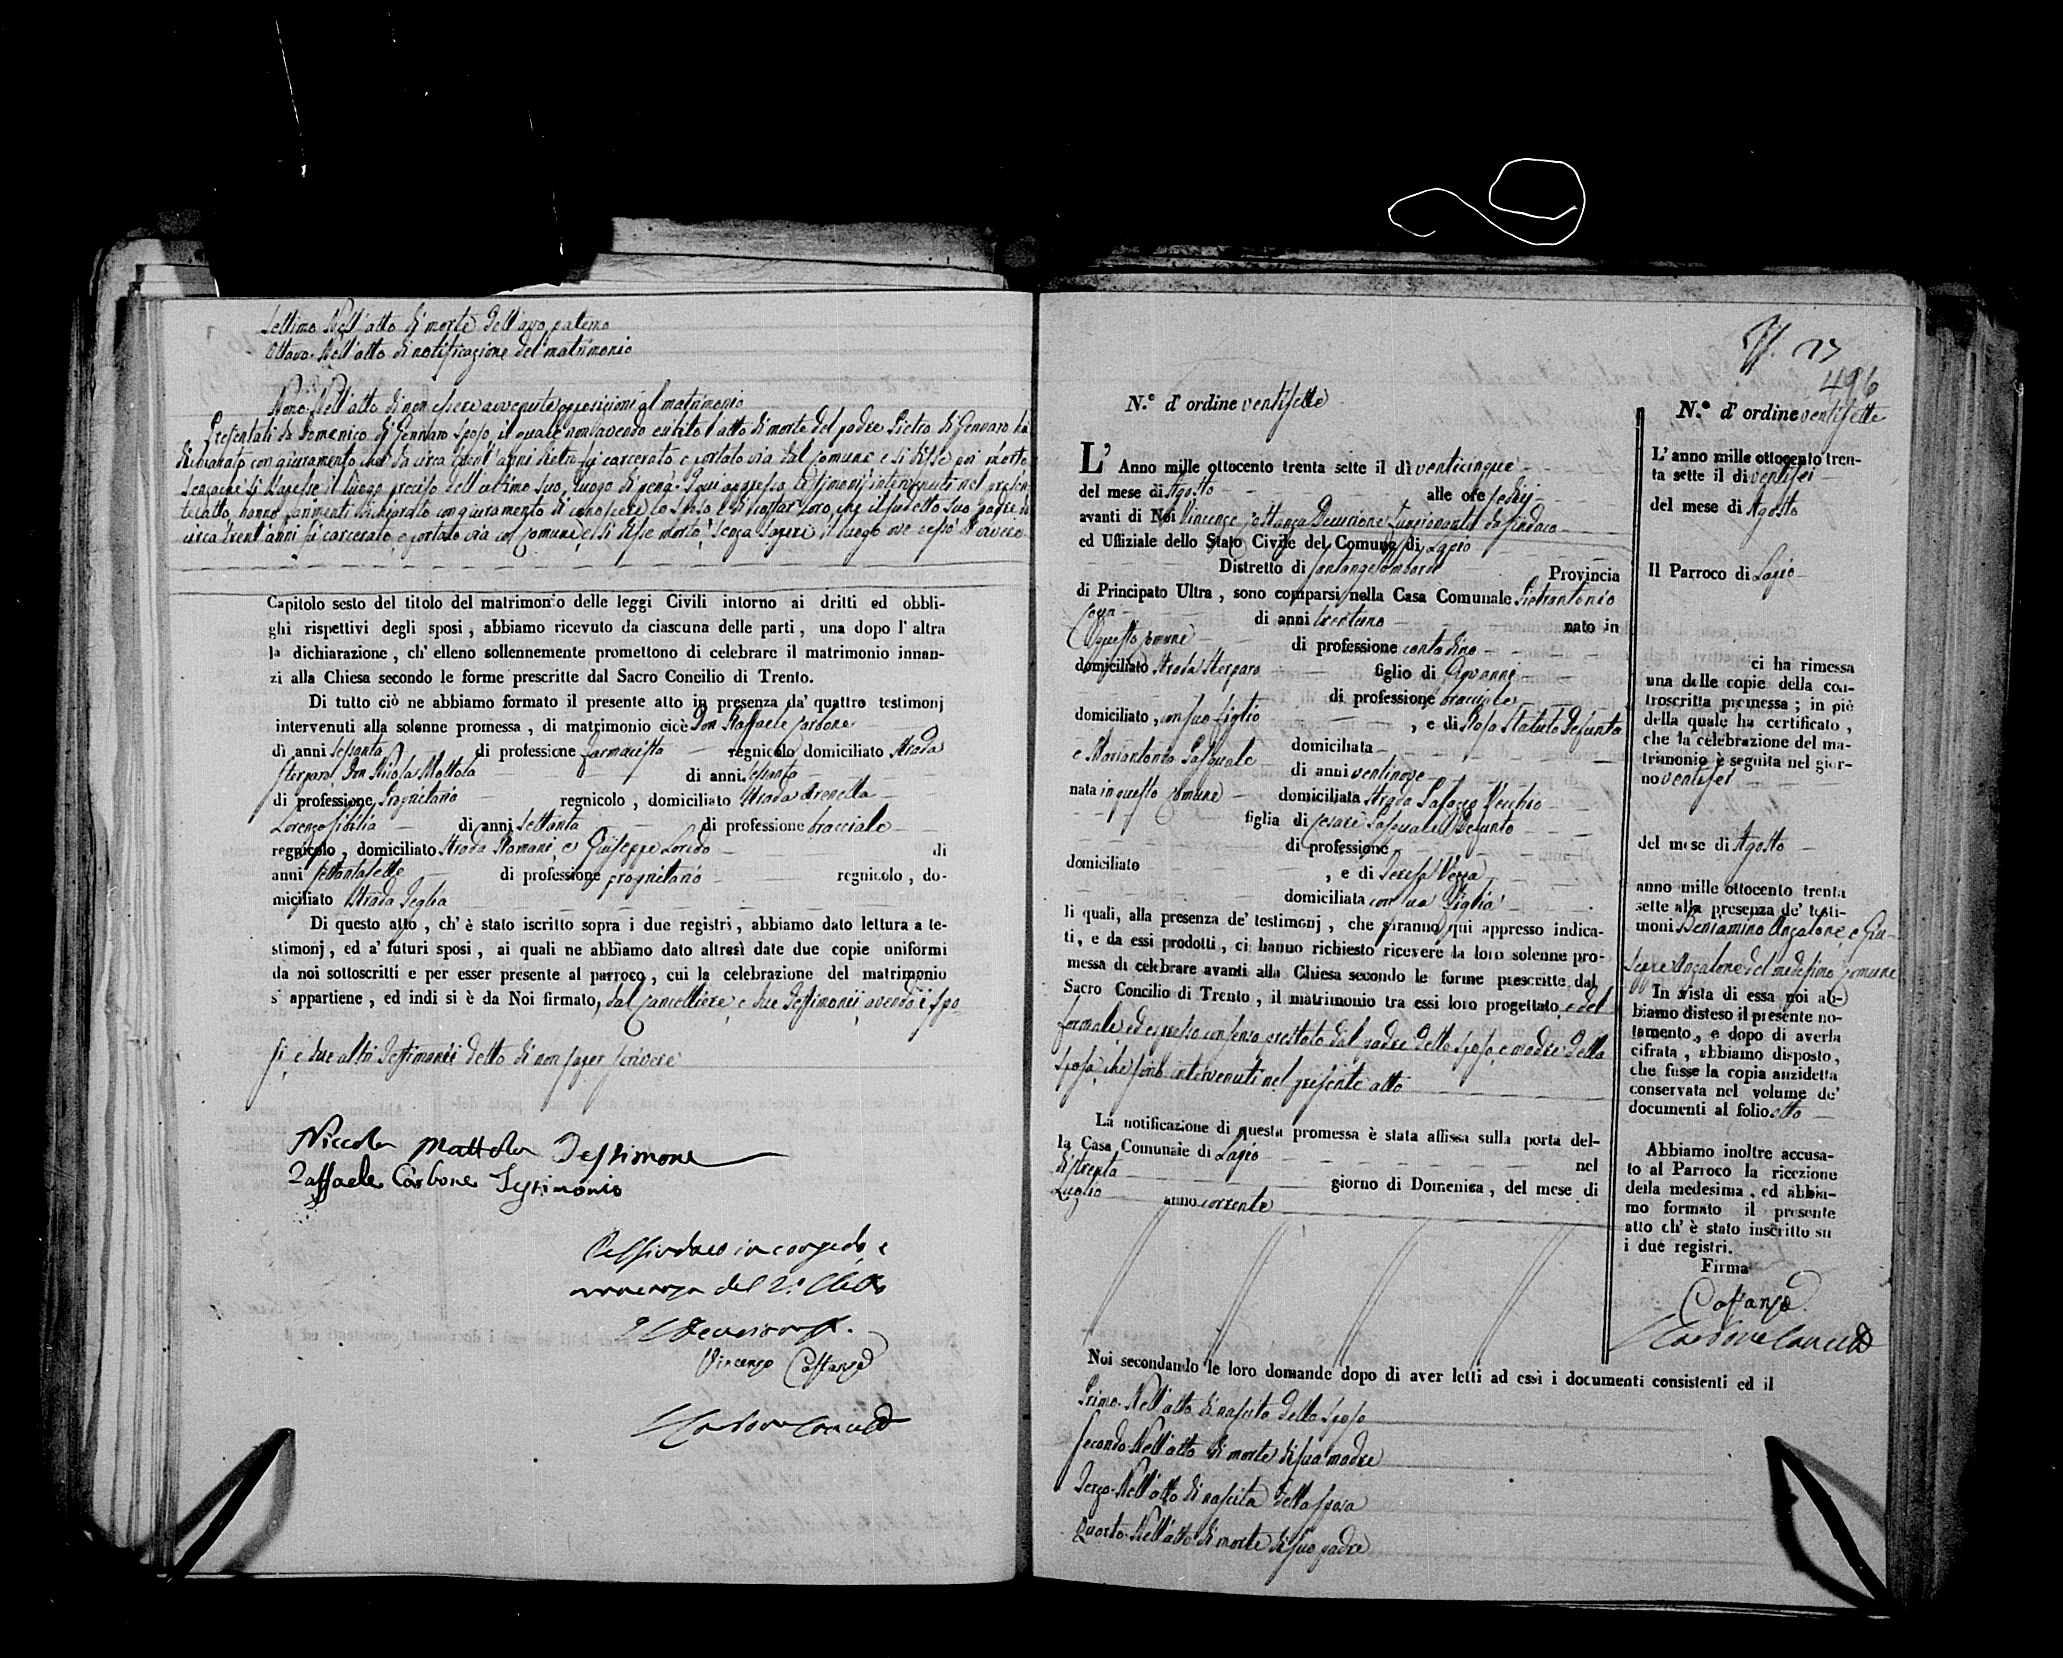 Settimo. Nell'atto di morte dell'avo paterno
Ottavo. Nell'atto di notificazione del matrimonio
Nono. Nell'atto di non essere avvenute opposizioni al matrimonio
Presentati da Domenico di Gennaro sposo, il quale non avendo esibito l'atto di morte del padre Pietro di Gennaro ha
dichiarato con giuramento che da circa trent'anni dietro fu carcerato e portato via dal Comune e si disse poi morto
senzache si sapesse il luogo preciso dell'ultimo suo luogo di pena. I qui appresso testimonj intervenuti nel presen-
te atto hanno parimenti dichiarato con giuramento di conoscere lo sposo e di costar loro, che il sudetto suo padre da
circa trent'anni fu carcerato, e portato via dal Comune, e si disse morto, senza sapere il luogo ove cessò di vivere
Capitolo sesto del titolo del matrimonio delle leggi Civili intorno ai dritti ed obbli-
ghi rispettivi degli sposi, abbiamo ricevuto da ciascuna delle parti, una dopo l'altra
la dichiarazione, ch'elleno sollennemente promettono di celebrare il matrimonio innan-
zi alla Chiesa secondo le forme prescritte dal Sacro Concilio di Trento.
Di tutto ciò ne abbiamo formato il presente atto in presenza da' quattro testimonj
intervenuti alla solenne promessa, di matrimonio cioè Don Raffaele Carbone
di anni sessanta di professione farmacista regnicolo domiciliato Strada
Sterparo Don Nicola Mottola di anni sessanta
di professione Proprietario regnicolo, domiciliato Strada Arenella
Lorenzo Sibilia di anni settanta di professione bracciale
regnicolo, domiciliato Strada Romani, e Giuseppe Loredo di
anni settantasette di professione proprietario regnicolo, do-
miciliato Strada Teglia
Di questo atto, ch'è stato iscritto sopra i due registri, abbiamo dato lettura a te-
stimonj, ed a' futuri sposi, ai quali ne abbiamo dato altresì date due copie uniformi
da noi sottoscritti e per esser presente al parroco, cui la celebrazione del matrimonio
s'appartiene, ed indi si è da Noi firmato, dal Cancelliere, e due Testimonii, avendo i spo-
si, e due altri Testimonii detto di non saper scrivere
Niccola Mottola Testimone
Raffaele Carbone Testimonio
Pel Sindaco in congedo, e
mancanza del 2.º Eletto
Il Decurione f.
Vincenzo Costanzo
Carbone Cancell.
27
496
N.º d'ordine ventisette
L'Anno mille ottocento trenta sette il dì venticinque
del mese di Agosto alle ore sedici
avanti di Noi Vincenzo Costanzo Decurione funzionante da Sindaco
ed Uffiziale dello Stato Civile del Comune di Lapio
Distretto di Santangelombardi Provincia
di Principato Ultra, sono comparsi nella Casa Comunale Pietrantonio
di anni trentuno nato in
questo Comune di professione contadino
domiciliato Strada Sterparo figlio di Giovanni
di professione bracciale
domiciliato, con suo figlio, e di Rosa Statuto Defunta
domiciliata
e Mariantonia Pasquale di anni ventinove
nata in questo Comune domiciliata Strada Palazzo Vecchio
figlia di Cesare Pasquale Defunto
di professione
domiciliato, e di Teresa Vezza
domiciliata con sua figlia
li quali, alla presenza de' testimonj, che saranno qui appresso indica-
ti, e da essi prodotti, ci hanno richiesto ricevere la loro solenne pro-
messa di celebrare avanti alla Chiesa secondo le forme prescritte dal
Sacro Concilio di Trento, il matrimonio tra essi loro progettato, e del
formale, ed espresso consenso prestato dal padre dello sposo, e madre della
sposa, che sono intervenuti nel presente atto
La notificazione di questa promessa è stata affissa sulla porta del-
la Casa Comunale di Lapio nel
dì trenta giorno di Domenica, del mese di
Luglio anno corrente
Noi secondando le loro domande dopo di aver letti ad essi i documenti consistenti ed il
Primo. Nell'atto di nascita dello sposo
Secondo. Nell'atto di morte di sua madre
Terzo. Nell'atto di nascita della sposa
Quarto. Nell'atto di morte di suo padre
N.º d'ordine ventisette
L'anno mille ottocento tren-
ta sette il di ventisei
del mese di Agosto
Il Parroco di Lapio
ci ha rimessa
una delle copie della con-
troscritta promessa; in piè
della quale ha certificato,
che la celebrazione del ma-
trimonio è seguita nel gior-
no ventisei
del mese di Agosto
anno mille ottocento trenta
sette alla presenza de' testi-
moni Beniamino Anzalone, e Giu-
seppe Anzalone del medesimo Comune
In vista di essa noi ab-
biamo disteso il presente no-
tamento, e dopo di averla
cifrata, abbiamo disposto,
che fusse la copia anzidetta
conservata nel volume de'
documenti al folio otto
Abbiamo inoltre accusa-
to al Parroco la ricezione
della medesima, ed abbia-
mo formato il presente
atto ch'è stato inscritto su
i due registri.
Firma
Costanzo
Carbone Cancell.